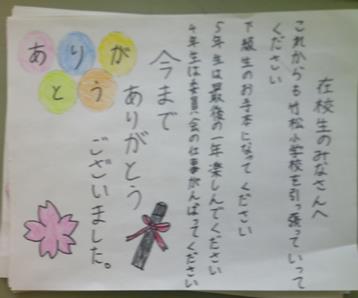 在校生のみなさんへ
これからも竹松小学校を引っ張っていって
ください
下級生のお手本になってください
5年生は最後の一年楽しんでください
4年生は委員会の仕事がんばってください
今まで
ありがとう
ございました。
ありが
とう